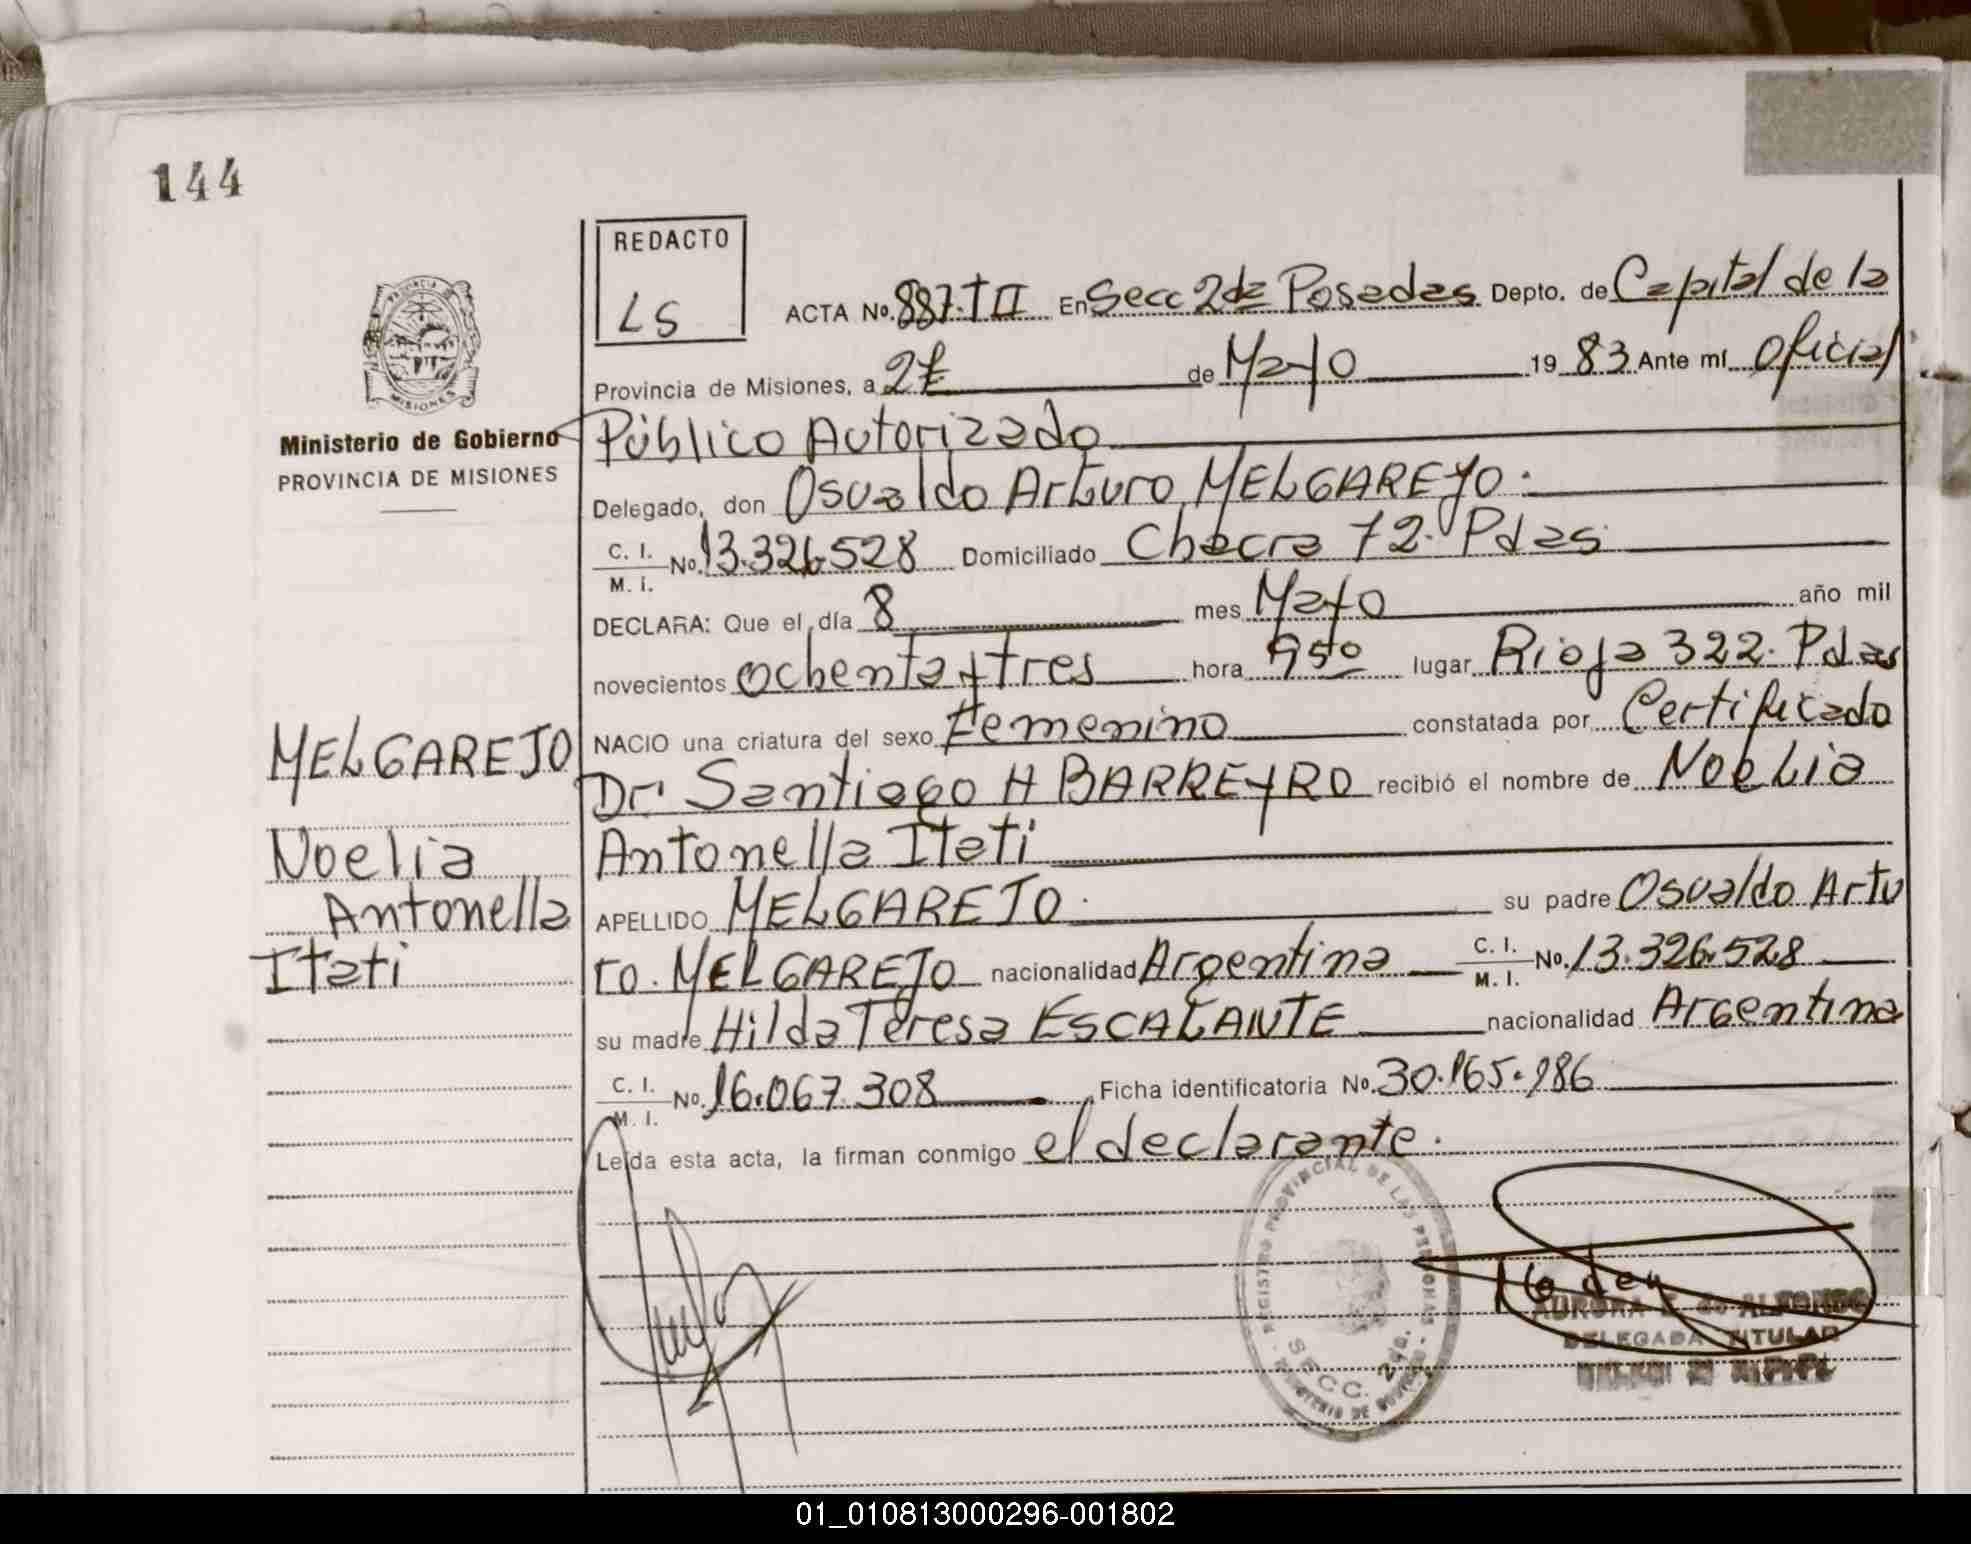 144
REDACTO
LS
ACTA No. 887. T II En Secc 2da Posadas Depto. de Capital de la
Provincia de Misiones, a 27 de Mayo 1983 Ante mí Oficial
Ministerio de Gobierno
PROVINCIA DE MISIONES
Público Autorizado
Delegado, don Osvaldo Arturo MELGAREJO.
C. I. M. I. No. 13.326.528 Domiciliado Chacra 72. Pdas.
DECLARA: Que el día 8 mes Mayo año mil
novecientos ochenta y tres hora 950 lugar Rioja 322. Pdas
NACIO una criatura del sexo Femenino constatada por Certificado
Dr. Santiago H BARREYRO recibió el nombre de Noelia
Antonella Itati
APELLIDO MELGAREJO. su padre Osvaldo Artu
ro. MELGAREJO nacionalidad Argentina C. I. M. I. No. 13.326.528
su madre Hilda Teresa ESCALANTE nacionalidad Argentina
C. I. M. I. No. 16.067.308 Ficha identificatoria No. 30.165.186
Leída esta acta, la firman conmigo el declarante.
MELGAREJO
Noelia
Antonella
Itati
PROVINCIA DE MISIONES
REGISTRO PROVINCIAL DE LAS PERSONAS
SECC. 2da.
MINISTERIO DE GOBIERNO
AURORA E. de
DELEGADA TITULAR
01_010813000296-001802